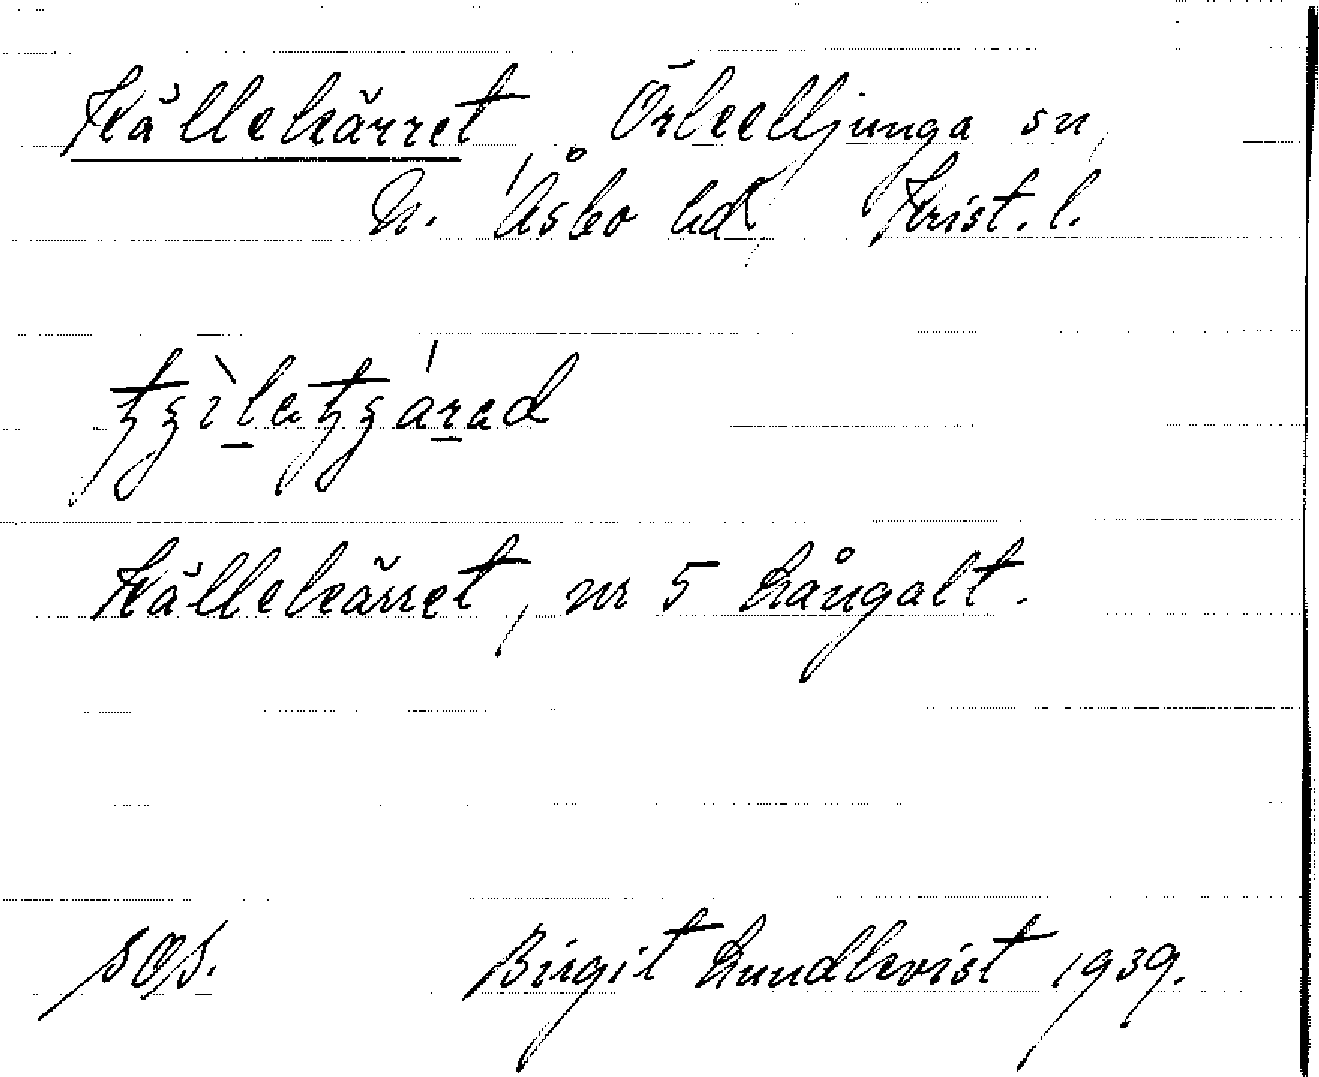 Källekärret, Örkelljunga sn,
N. Åsbo hd, Krist. l.
Källekärret, nr 5 Långalt.
sos. Birgit Lundkvist 1939.